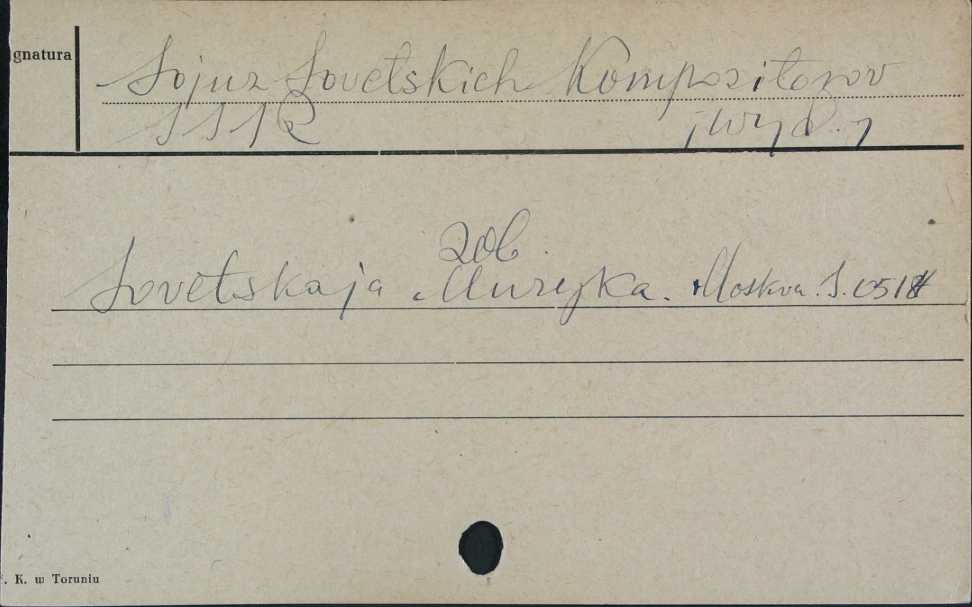 gnatura
Sojuz Sovetskich Kompozitorov
SSSR [wyd.]
zob.
Sovetskaja Muzyka. Moskva. S. 0518
. K. w Toruniu